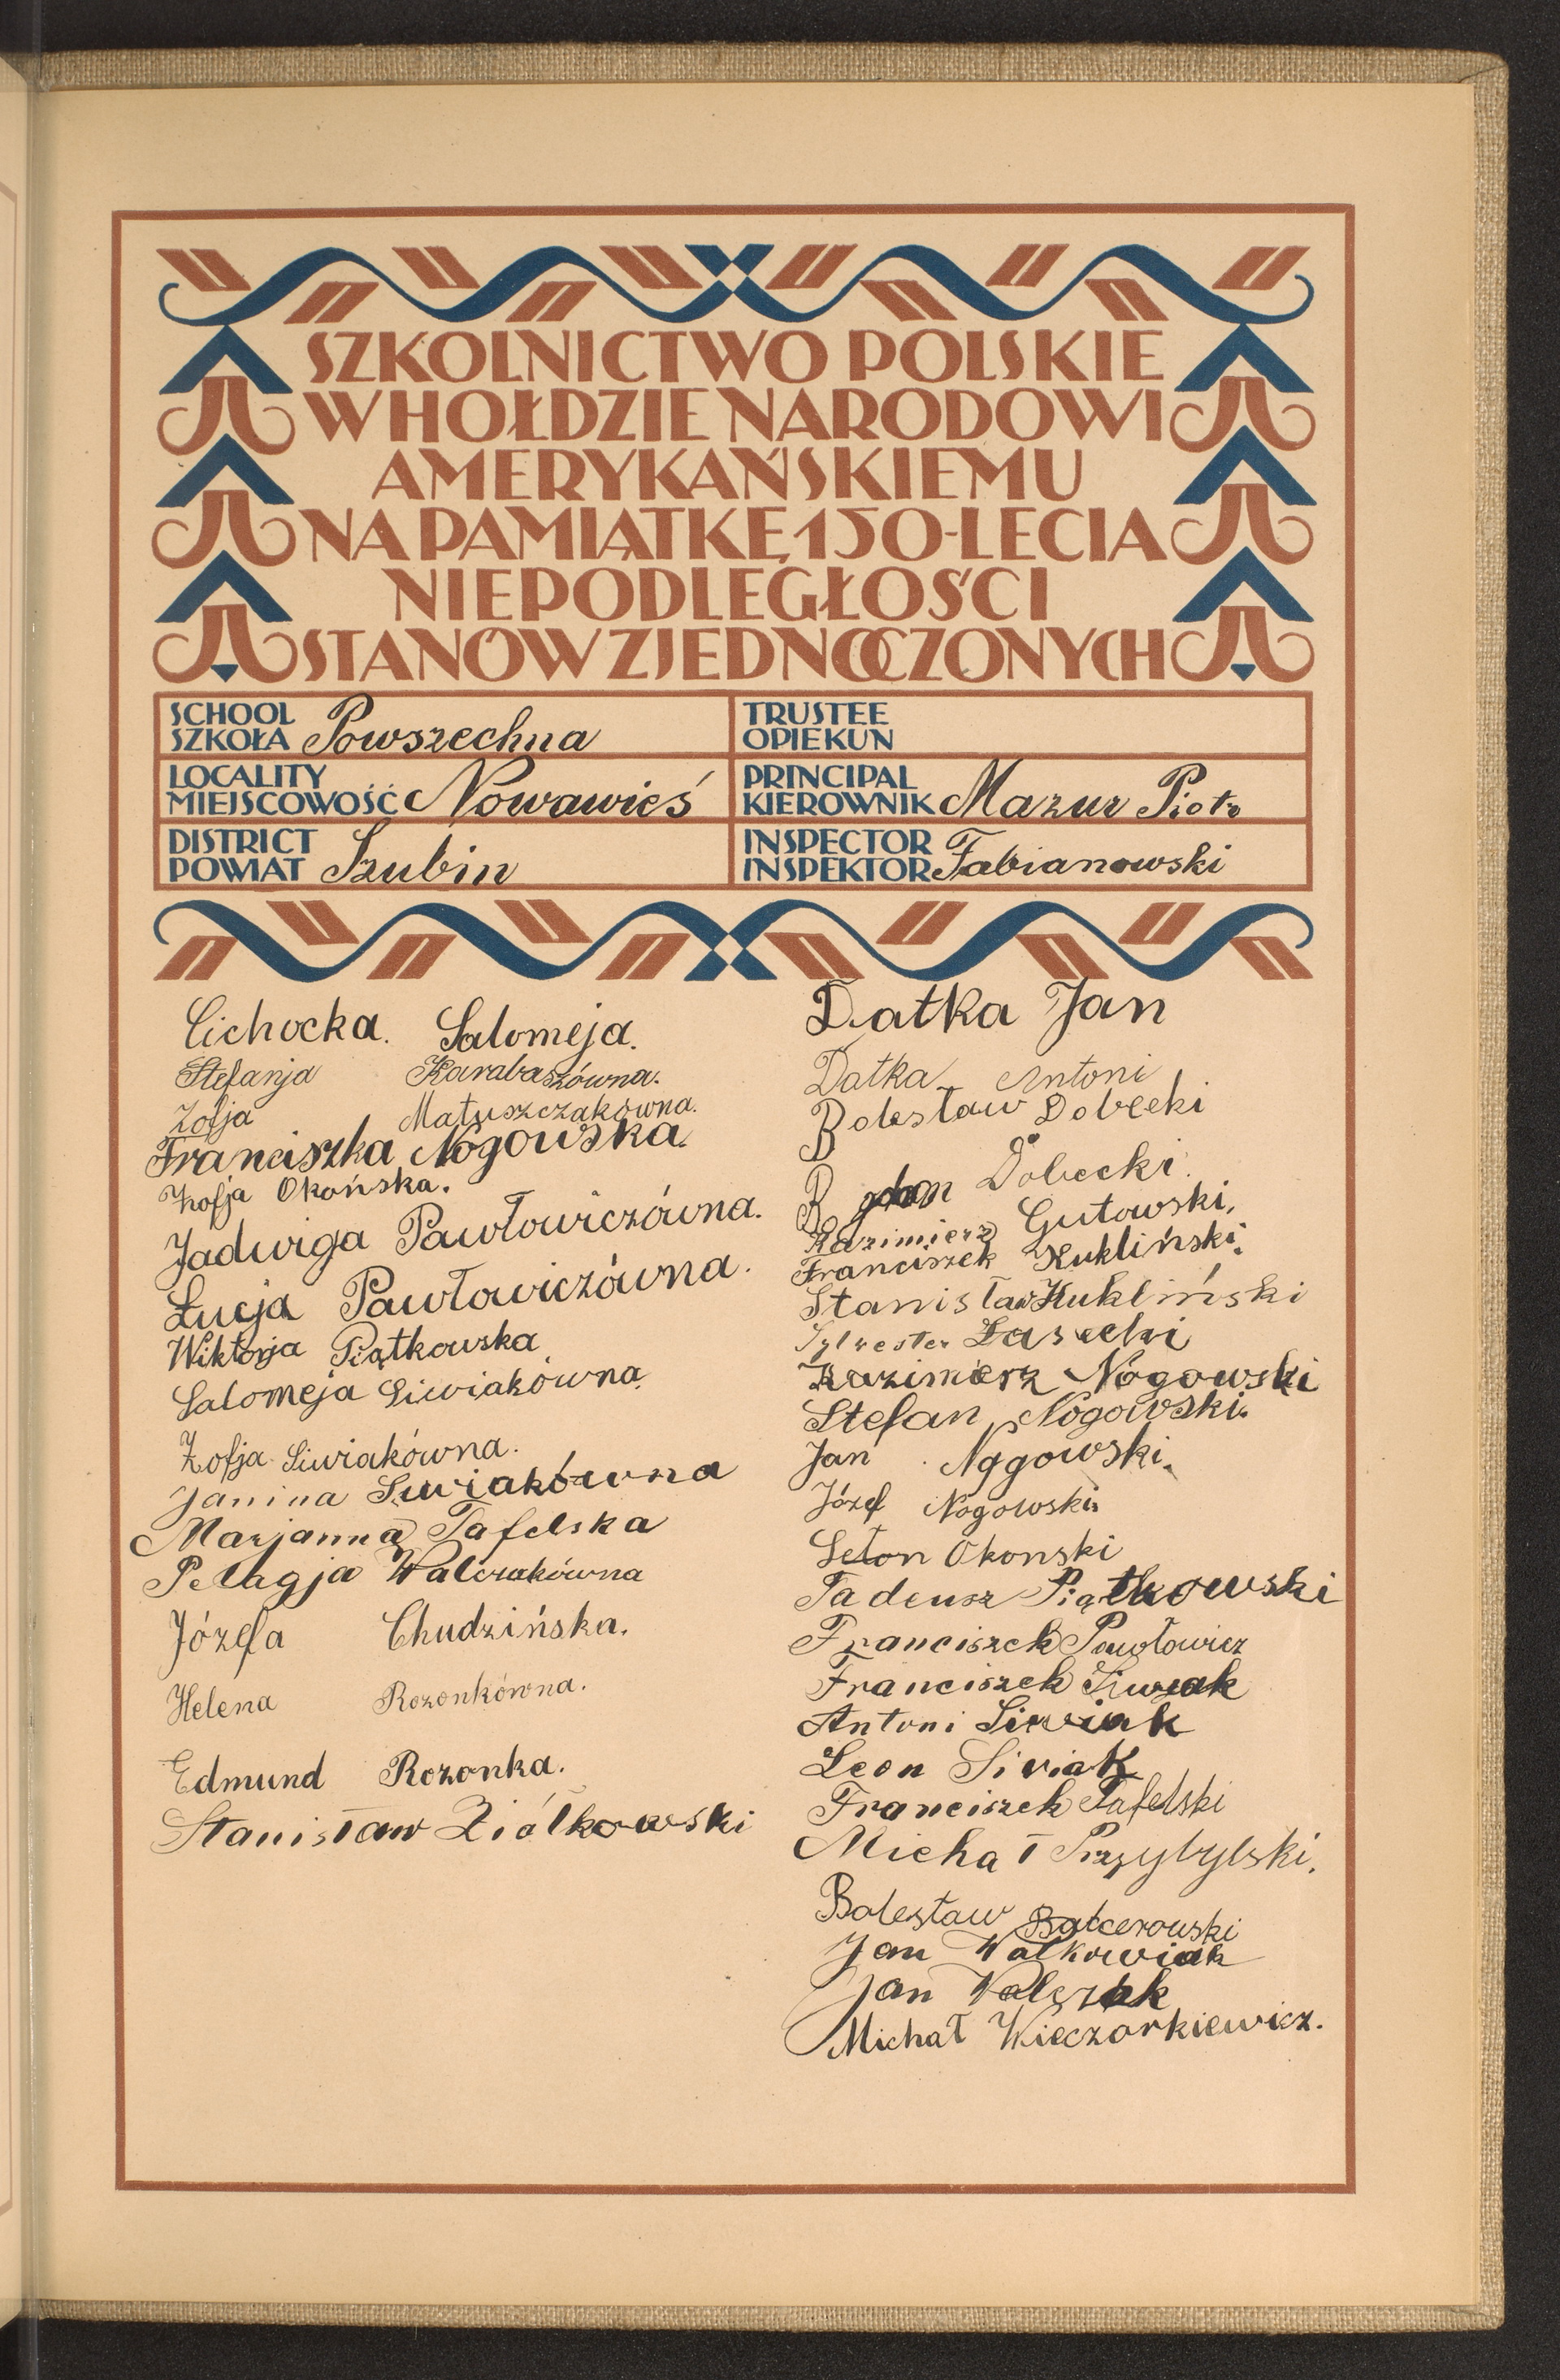 SZKOLNICTWO POLSKIE
W HOŁDZIE NARODOWI
AMERYKAŃSKIEMU
NA PAMIĄTKĘ 150-LECIA
NIEPODLEGŁOŚCI
STANÓW ZJEDNOCZONYCH
SCHOOL
SZKOŁA Powszechna
LOCALITY
MIEJSCOWOŚĆ Nowawieś
DISTRICT
POWIAT Szubin
TRUSTEE
OPIEKUN
PRINCIPAL
KIEROWNIK Mazur Piotr
INSPECTOR
INSPEKTOR Fabianowski
Cichocka. Salomeja.
Stefanja Karabaszówna.
Zofja Matuszczakówna.
Franciszka Nogowska.
Zofja Okońska.
Jadwiga Pawłowiczówna.
Łucja Pawłowiczówna.
Wiktorja Piątkowska
Salomeja Siwiakówna.
Zofja Siwiakówna.
Janina Siwiakówna
Marjanna Tafelska
Pelagja Walczakówna
Józefa Chudzińska.
Helena Rozonkówna.
Edmund Rozonka.
Stanisław Ziółkowski
Datka Jan
Datka Antoni
Bolesław Dobecki
Dobecki.
Kazimierz Gutowski,
Franciszek Kukliński.
Stanisław Kukliński
Sylwester Łasecki
Kazimierz Nogowski
Stefan Nogowski.
Jan Nogowski.
Józef Nogowski
Okonski
Tadeusz Piątkowski
Franciszek Pawłowicz
Franciszek Siwiak
Antoni Siwiak
Leon Siwiak
Franciszek Tafelski
Michał Przybylski.
Bolesław Balcerowski
Jan Walkowiak
Jan Walczak
Michał Wieczorkiewicz.